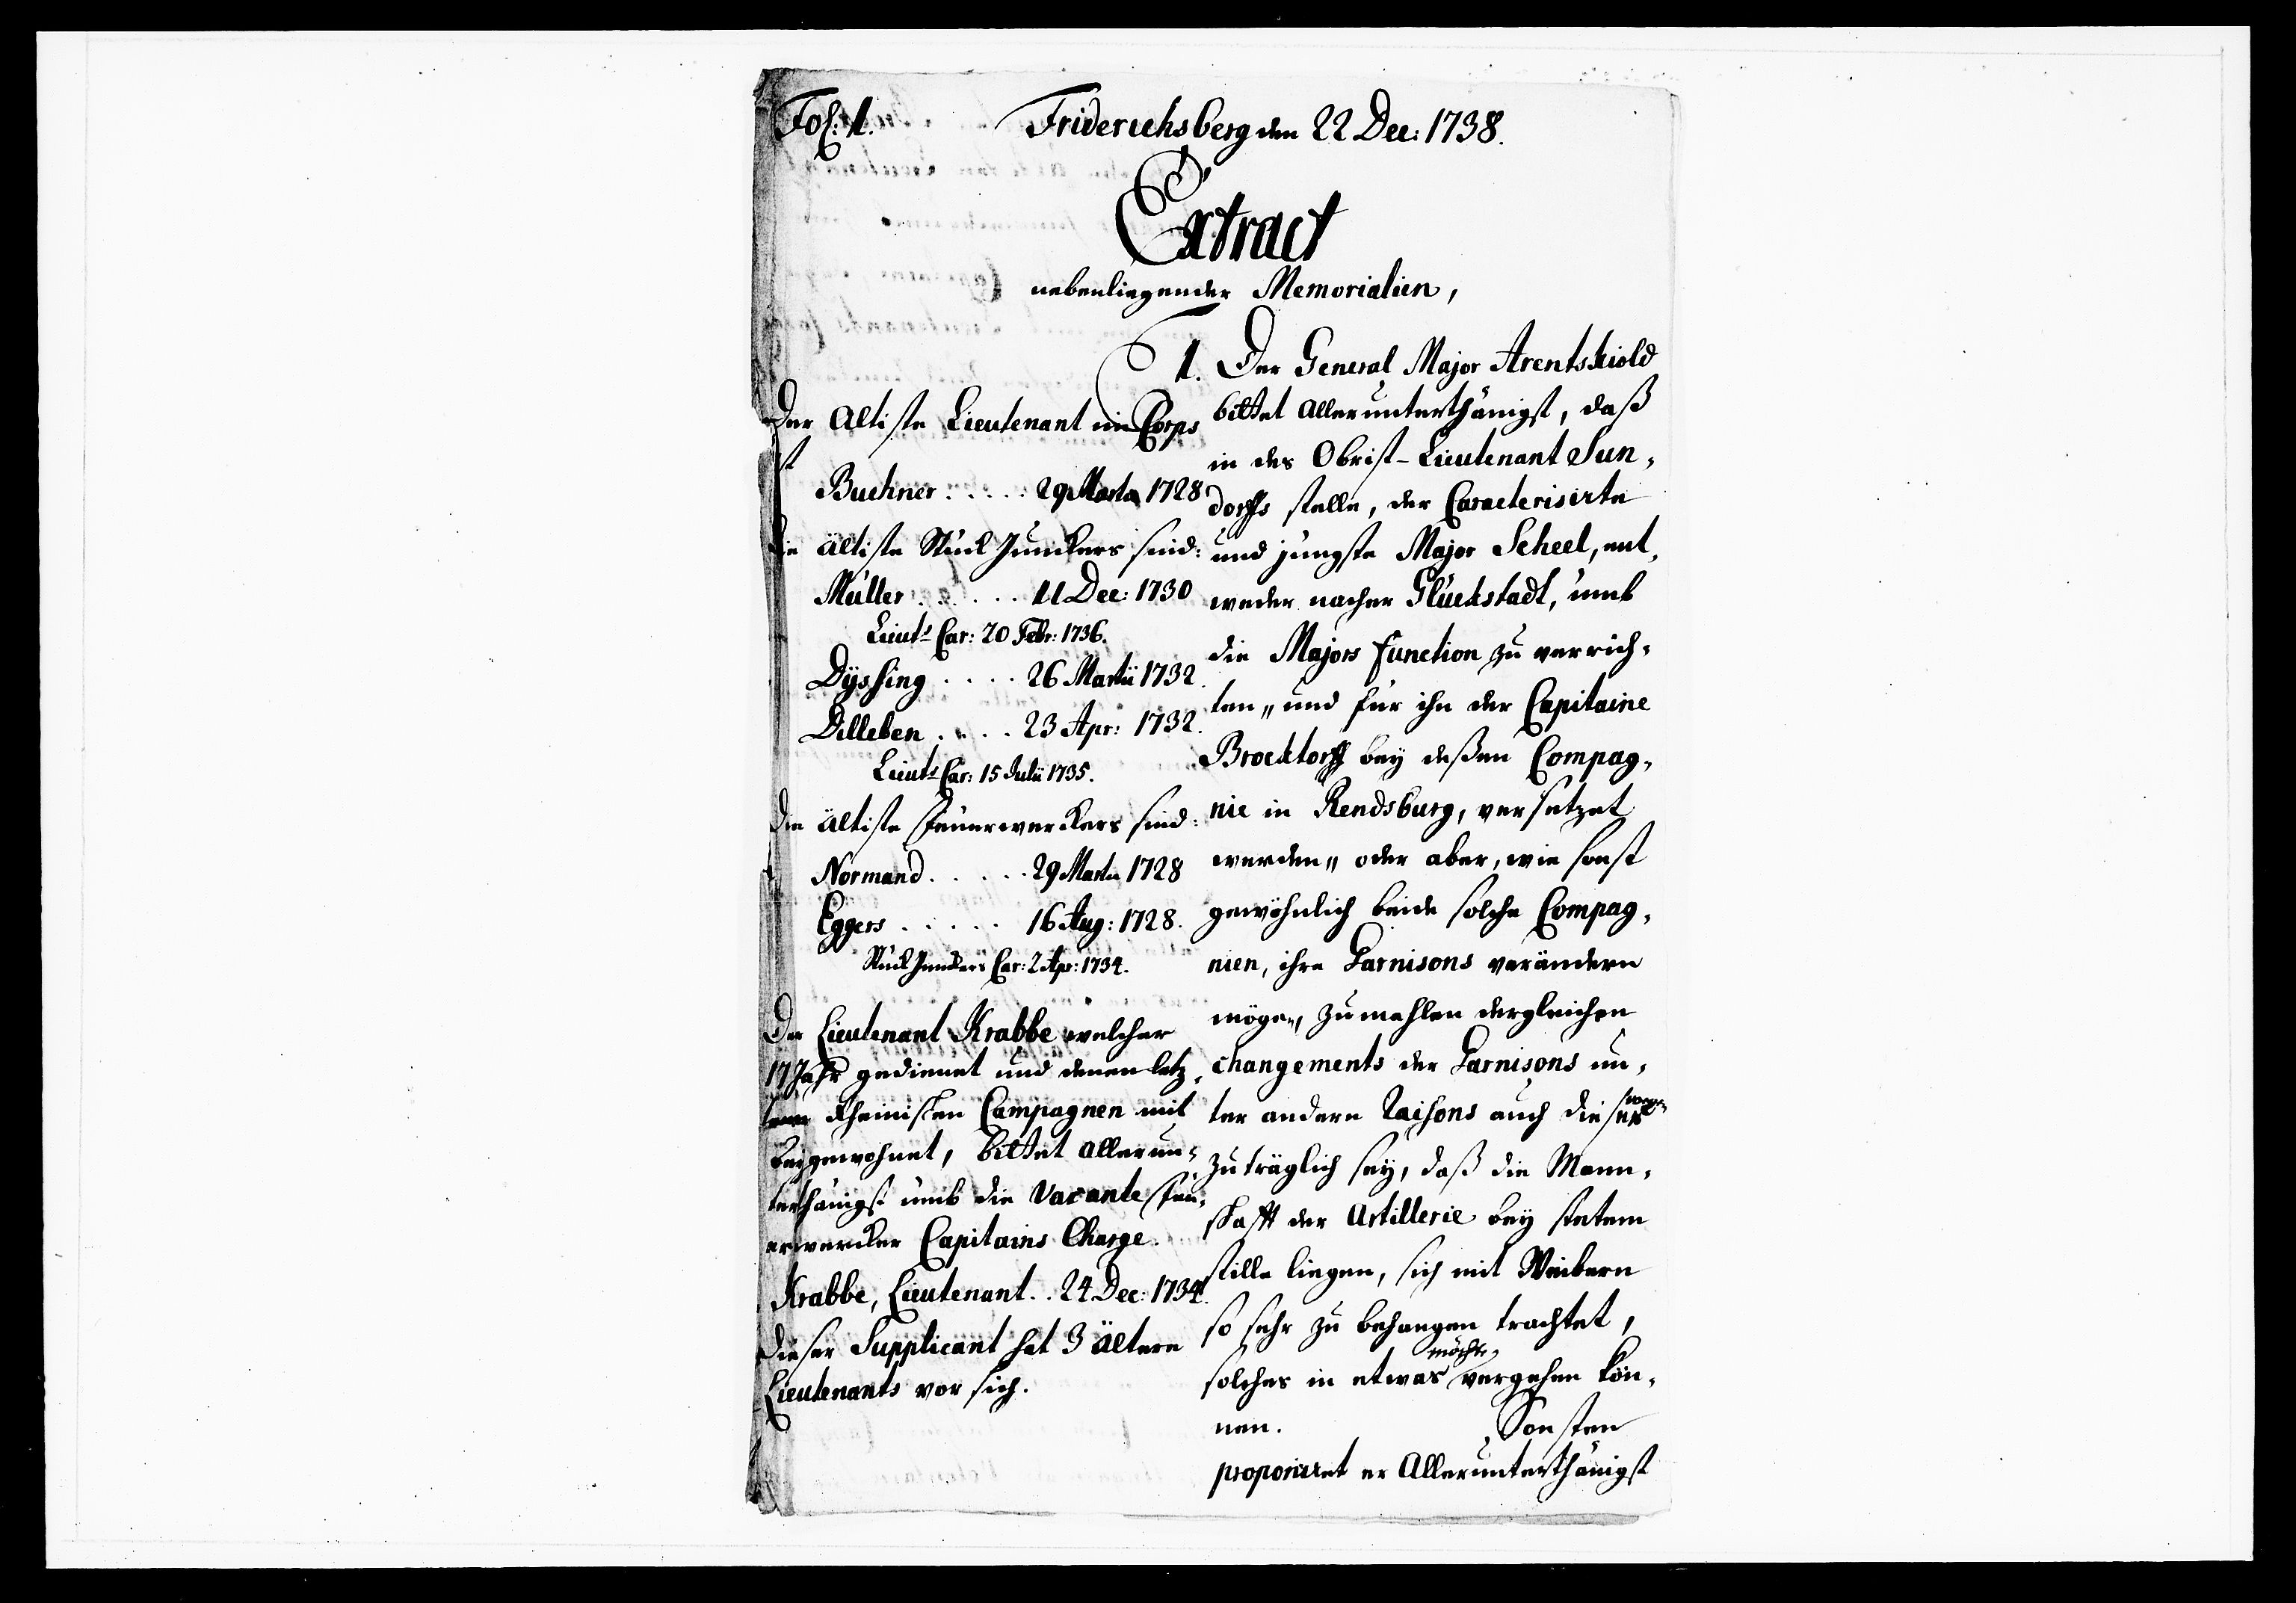 Fol: 1.
Friderichsberg den 22 Dec: 1738.
Extract
nebenliegender Memorialien,
Der Altiste Lieutenant im Corps
ist
Buchner . . . . . 29 Martii 1728
Die ältiste Stück Junckers sind:
Müller . . . . . 11 Dec: 1730
Lieuts Car: 20 Febr: 1736.
Dÿssing . . . . 26 Martii 1732.
Dilleben . . . . 23 Apr: 1732.
Lieuts Car: 15 Julii 1735.
Die ältiste Feuerwerckers sind:
Normand . . . . . 29 Martii 1728
Eggers . . . . . 16 Aug: 1728.
Stück Junckers Car: 2 Apr: 1734.
Der Lieutenant Krabbe welcher
17 Jahr gedienet und denen letz,
tern Rheinischen Campagnen mit
beygewohnet, bittet allerun,
terthänigst umb die Vacante Feu,
erwercker Capitains Charge.
Krabbe, Lieutenant . . 24 Dec: 1734.
Dieser Supplicant hat 3 ältere
Lieutenants vor sich.
1. Der General Major Arentskiold
bittet allerunterthänigst, daß
in des Obrist-Lieutenant Sun,
dorffs stelle, der Caracterisirte
und jüngste Major Scheel, ent,
weder nacher Glückstadt, umb
die Majors function zu verrich,
ten,, und für ihn der Capitaine
Brocktorff bey deßen Compag,
nie in Rendsburg, versetzet
werden,, oder aber, wie sonst
gewöhnlich beide solche Compag,
nien, ihre Garnisons verändern
mögen, zumahlen dergleichen
changements der Garnisons un,
ter andern raisons auch dieser wegen
zuträglich sey, daß die Mann,
schafft der Artillerie bey stetem
stille liegen, sich mit Weibern
so sehr zu behangen trachtet,
solches in etwas möchte vergehen kön,
nen. Sonsten
proponiret er Allerunterthänigst